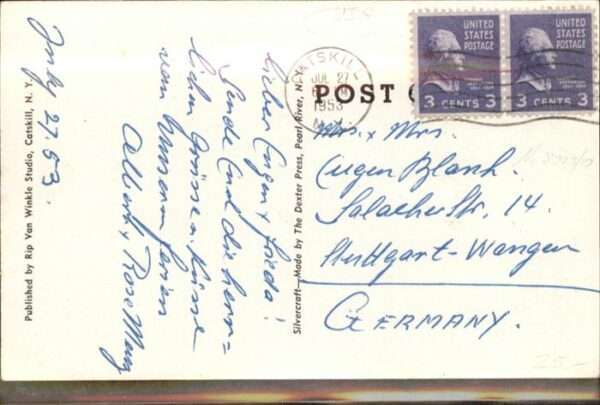 July 27 53.
Lieber Eugen & Frieda!
Sende Euch die herz=
lichen Grüsse u. Küsse
von unseren ferien
Albert & Rose Mary
Published by Rip Van Winkle Studio, Catskill, N. Y.
Silvercraft—Made by The Dexter Press, Pearl River, N. Y.
CATSKILL
JUL 27
1953
N.Y.
POST C
UNITED
STATES
POSTAGE
3 CENTS 3
UNITED
STATES
POSTAGE
3 CENTS 3
Mrs. & Mrs.
Eugen Blank.
Salacher Str. 14.
Stuttgart-Wangen
GERMANY.